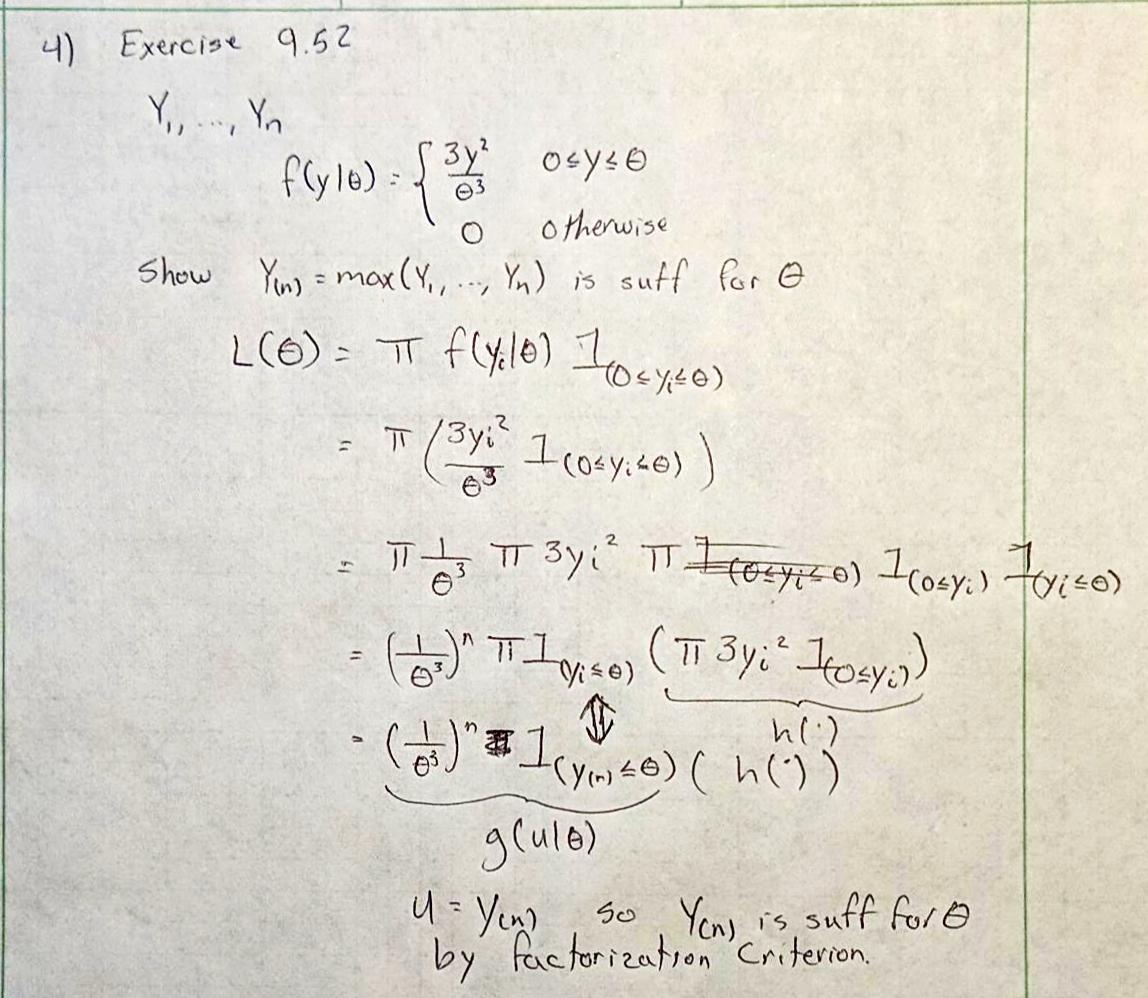 4) Exercise 9.52
Y₁, ..., Yₙ
f(y|θ) = { 3y²/θ³ 0≤y≤θ
0 otherwise
Show Y₍ₙ₎ = max(Y₁, ..., Yₙ) is suff for θ
L(θ) = π f(yᵢ|θ) 1(0≤yᵢ≤θ)
= π (3yᵢ²/θ³ 1(0≤yᵢ≤θ))
= π 1/θ³ π 3yᵢ² π 1(0≤yᵢ≤θ) 1(0≤yᵢ) 1(yᵢ≤θ)
= (1/θ³)ⁿ π 1(yᵢ≤θ) (π 3yᵢ² 1(0≤yᵢ))
⇕ h(·)
= (1/θ³)ⁿ 1(y₍ₙ₎≤θ) ( h(·) )
g(u|θ)
u = Y₍ₙ₎ so Y₍ₙ₎ is suff for θ
by factorization Criterion.